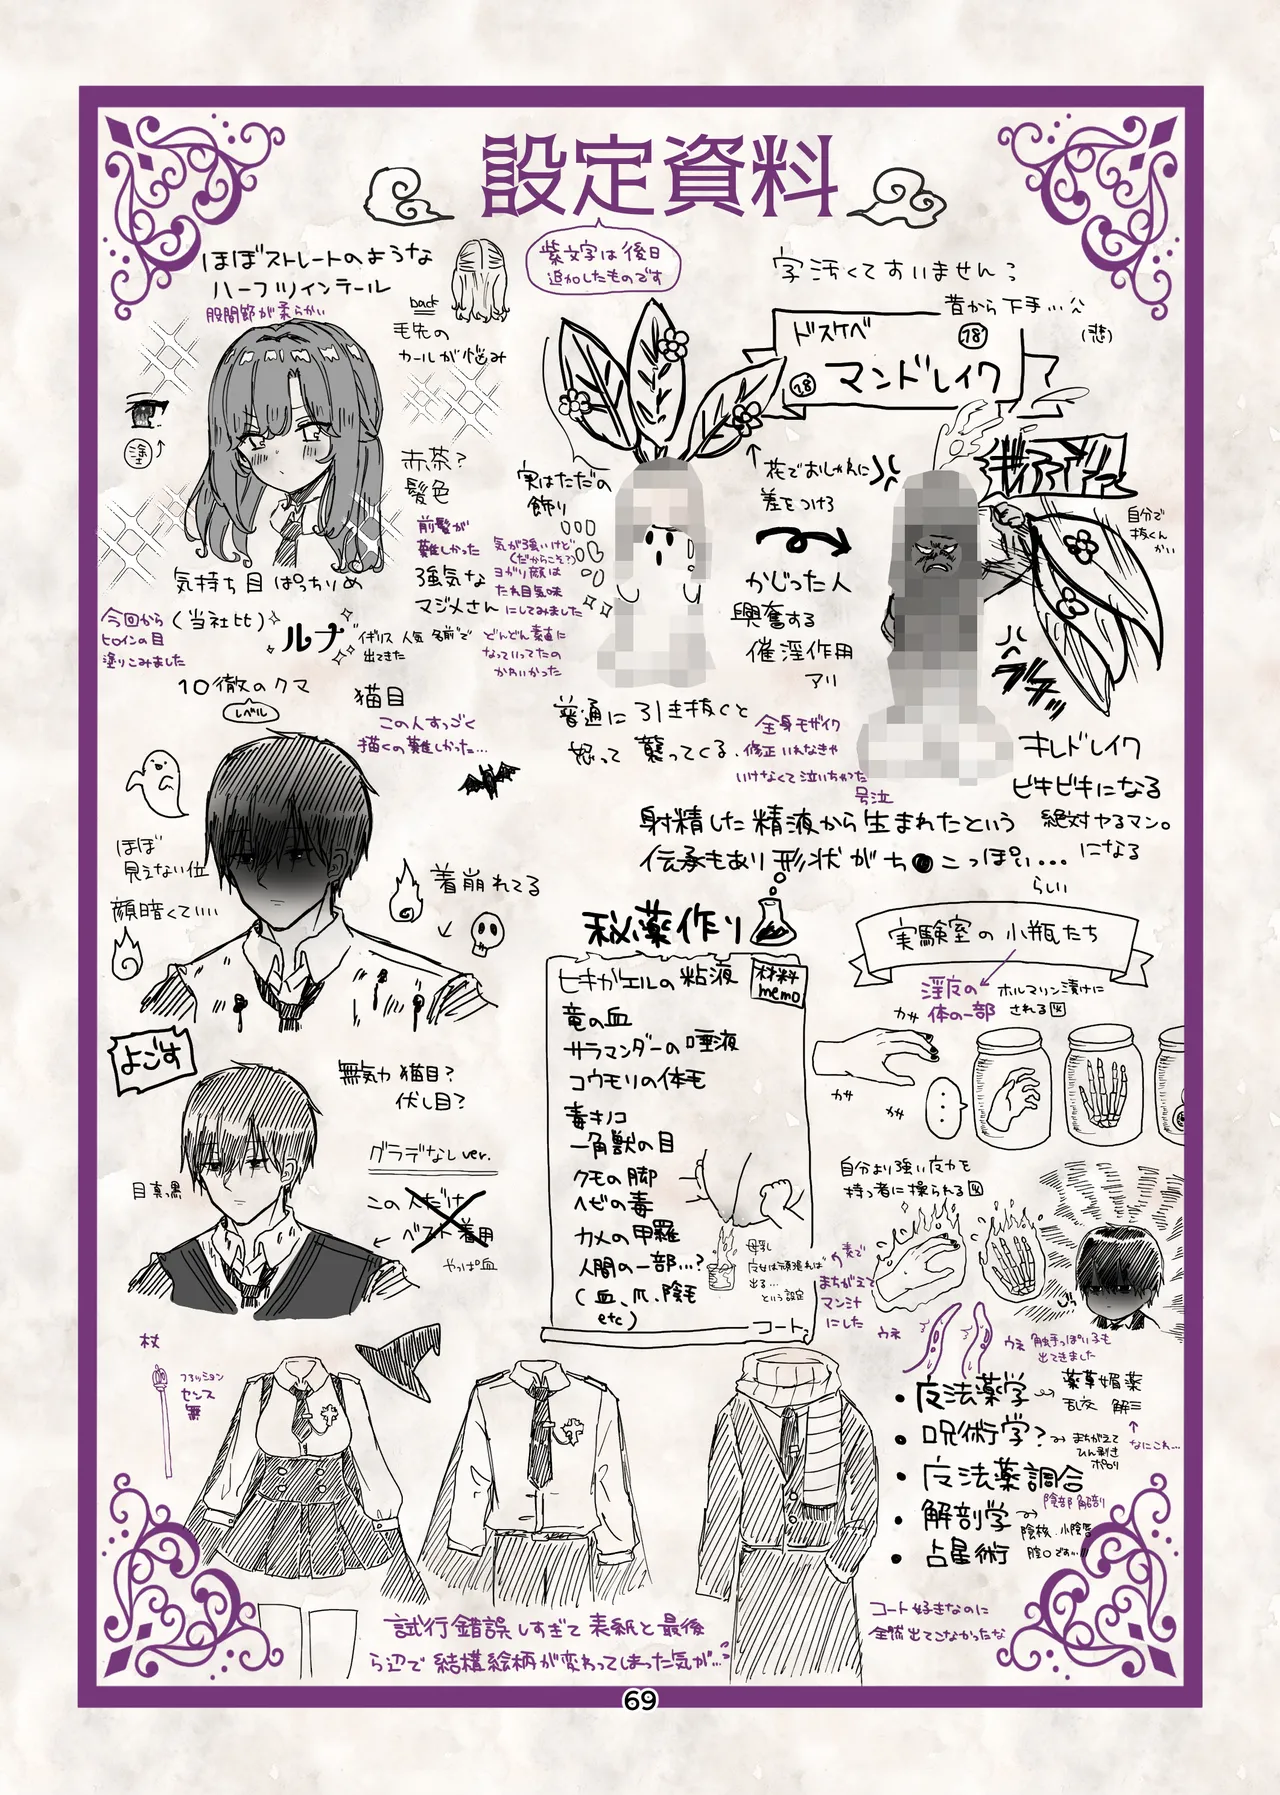 設定資料
紫文字は後日
追加したものです
字汚くてすいません
昔から下手…
(悲)
ほぼストレートのような
ハーフツインテール
股関節が柔らかい
back
毛先の
カールが悩み
塗
赤茶?
髪色
前髪が
難しかった
強気な
マジメさん
気が強いけど
(だからこそ?)
ヨガり顔は
たれ目気味
にしてみました
どんどん素直に
なっていってたの
かわいかった
気持ち目ぱっちりめ
(当社比)
今回から
ヒロインの目
塗りこみました
ルナ
イギリス 人気 名前で
出てきた
ドスケベ
18
18
マンドレイク
実はただの
飾り
花でおしゃれに
差をつける
かじった人
興奮する
催淫作用
アリ
自分で
抜くん
かい
普通に引き抜くと
怒って襲ってくる.
全身モザイク
修正いれなきゃ
いけなくて泣いちゃった
号泣
キレドレイク
ビキビキになる
絶対ヤるマン。
になる
射精した精液から生まれたという
伝承もあり形状がち●こっぽい…
らしい
10徹のクマ
レベル
猫目
この人すっごく
描くの難しかった…
ほぼ
見えない位
顔暗くていい
着崩れてる
よごす
無気力猫目?
伏し目?
グラデなしver.
目真っ黒
この人だけ
ベスト着用
やっぱ皿
秘薬作り
材料
memo
ヒキガエルの粘液
竜の血
サラマンダーの唾液
コウモリの体毛
毒キノコ
一角獣の目
クモの脚
ヘビの毒
カメの甲羅
人間の一部…?
(血、爪、陰毛
etc)
母乳
女は頑張れば
出る…
という設定
素で
まちがえて
マン汁
にした
実験室の小瓶たち
淫夜の
体の一部
ホルマリン漬けに
される図
カサ
カサ
カサ
…
自分より強い魔力を
持つ者に操られる図
ウネ
ウネ
触手っぽい子も
出てきました
・魔法薬学
薬草媚薬
乱交
・呪術学?
まちがえて
ひん剥き
ポロリ
なにこれ…
・魔法薬調合
・解剖学
陰部解剖
陰核、小陰唇
・占星術
杖
ファッション
センス
無
コート
コート好きなのに
全然出てこなかったな
試行錯誤しすぎて表紙と最後
ら辺で結構絵柄が変わってしまった気が…
69